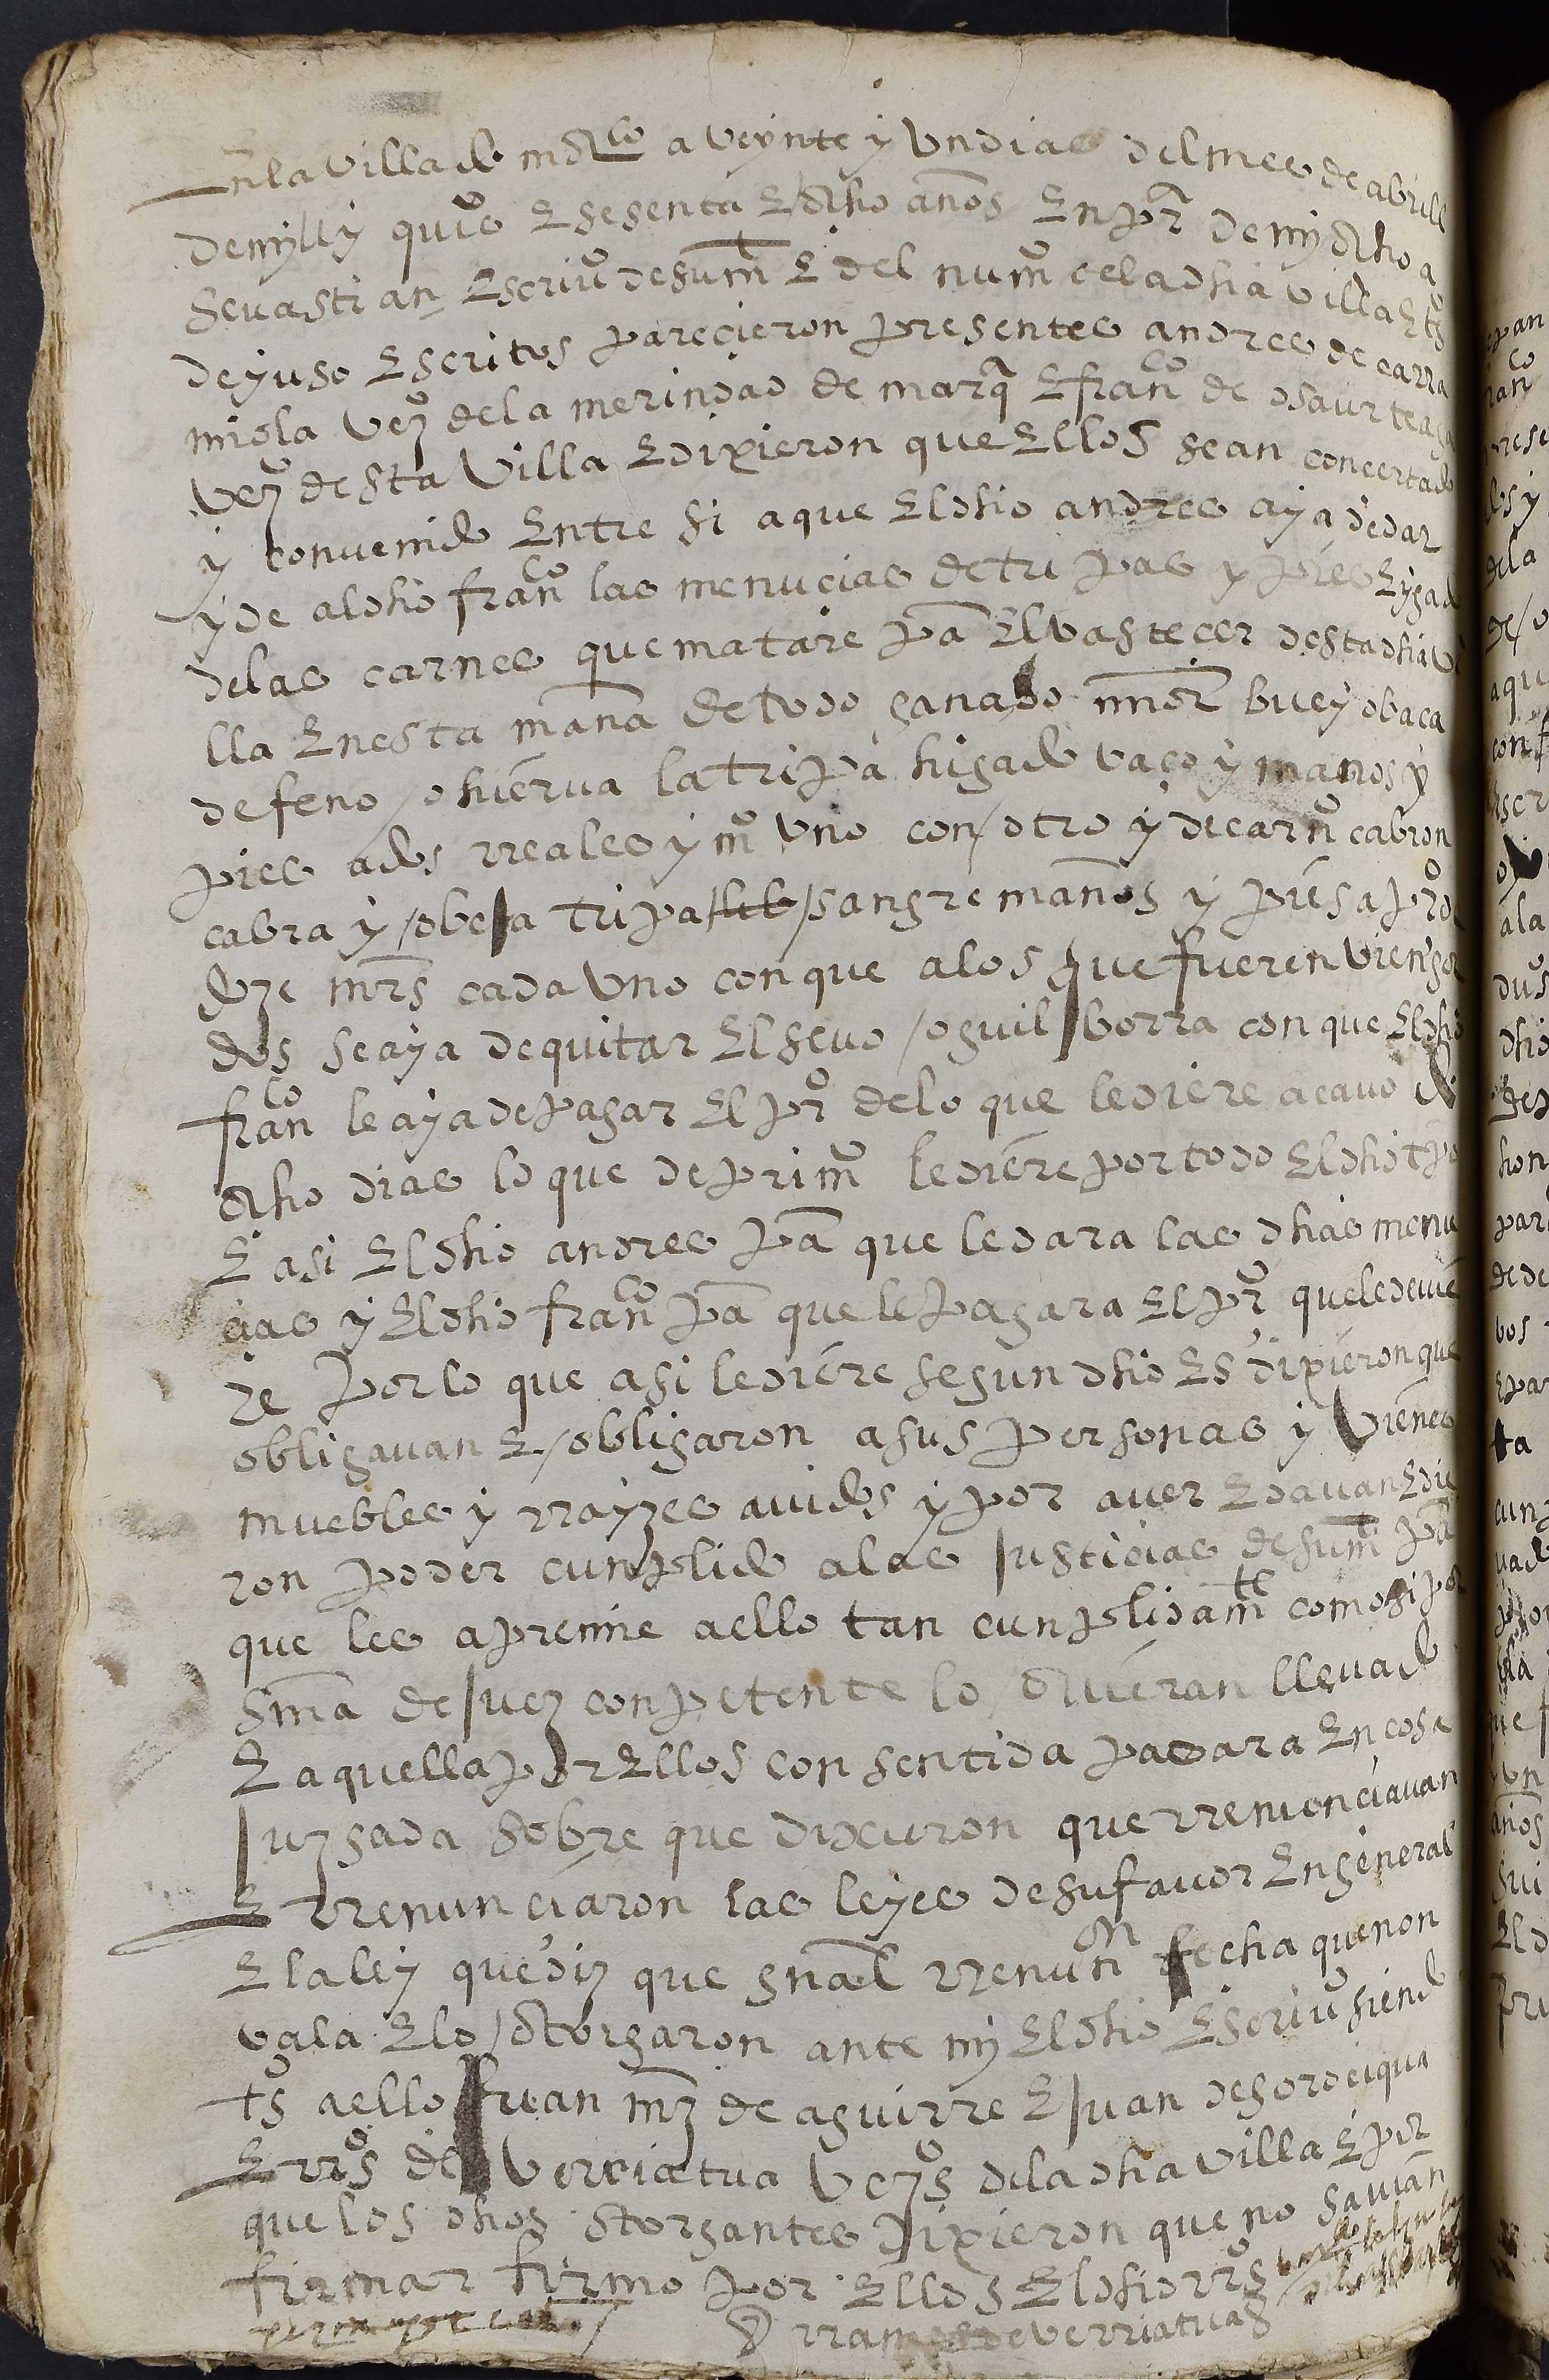 En la villa de a veynte y un dias del mes de abrill
de myll y quis E sesenta E ocho anos En pr̃a de my
Sevastian Escriuo de su mt E del numo de la dha villa E ts
de yuso Escritos parecieron presentes andres de carra
miola vezo de la merindad de marqa E franco de osaurteaga
vezo desta villa E dixieron que Ellos se an concertado
y convenido Entre si a que El dho andres aya de dar
y de al dho franco las menucias de tripas y pies E ygado
de las carnes que matare pa El vastecer desta dha vi
lla En esta mana de todo ganado buey o baca
de feno / o hierva la tripa higado vaço y manos y
pies a dos rreales y mo uno con / otro y de carno cabron
cabra y / obeja tripa / sangre manos y pies a pro de
doze mrs cada uno con que a los que fueren bien gor
dos se aya de quitar El sevo / o guilborra con que El dho
franco le aya de pagar El pro de lo que le diere a cavo de
ocho dias lo que de primo le diere por todo El dho tpo
E asi El dho andres pa que le dara las dhas menu
cias y El dho franco pa que le pagara El pro que le devie
re por lo que asi le diere segun dho Es dixieron que
obligavan E / obligaron a sus personas y vienes
muebles y rrayzes avidos y por aver E davan E die
ron poder cunplido a las Justicias de su mt pa
que les apremie a ello tan cunplidamte como si por
sma de Juez conpetente lo / ovieran llevado
E aquella por Ellos consentida pasara En cosa
Juzgada sobre que dixeron que rrenunciavan
E rrenunciaron las leyes de su favor En general
E la ley que diz que gnal rrenunon fecha que non
vala E lo / otorgaron ante my El dho Escriuo siendo
ts a ello Juan mz de aguirre E Juan de gorociqua
E rros de verriatua vezos de la dha villa E por
que los dhos otorgantes dixieron que no savian
firmar firmo por Ellos El dho rros
rramos de verriatua